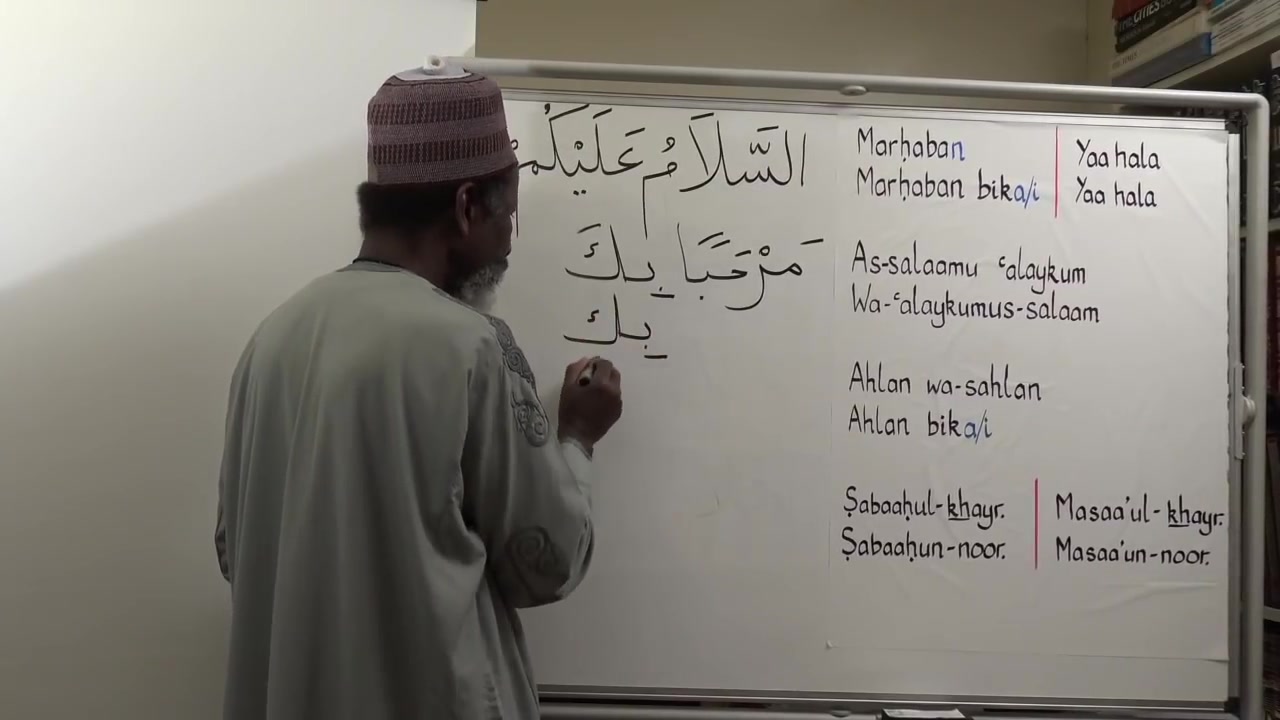 السَّلاَمُ عَلَيْكُمْ
مَرْحَبًا بِكَ
بِكِ
Marḥaban | Yaa hala
Marḥaban bika/i | Yaa hala
As-salaamu ʿalaykum
Wa-ʿalaykumus-salaam
Ahlan wa-sahlan
Ahlan bika/i
Ṣabaaḥul-khayr. | Masaa'ul-khayr.
Ṣabaaḥun-noor. | Masaa'un-noor.